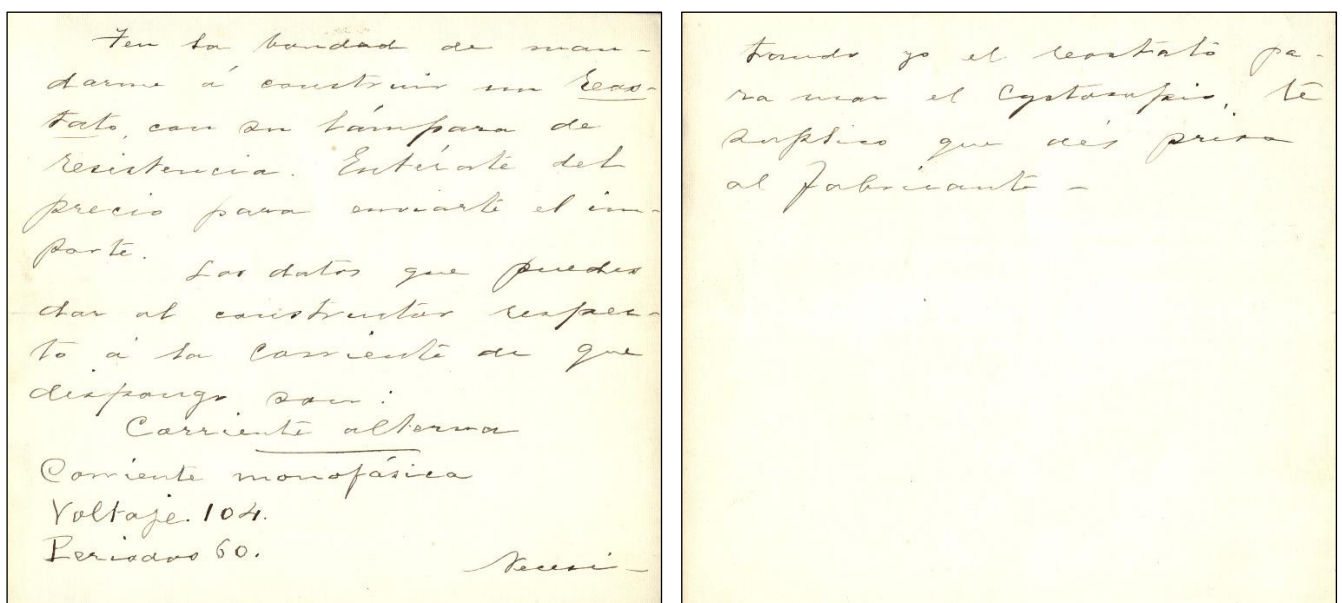 Ten la bondad de man-
darme á construir un reos-
tato, con su lámpara de
resistencia. Entérate del
precio para enviarte el im-
porte.
Los datos que puedes
dar al constructor respec-
to á la corriente de que
dispongo son:
Corriente alterna
Corriente monofásica
Voltaje. 104.
Periodos 60.
Necesi-
tando yo el reostato pa-
ra usar el Cystoscopio, te
suplico que dés prisa
al fabricante -